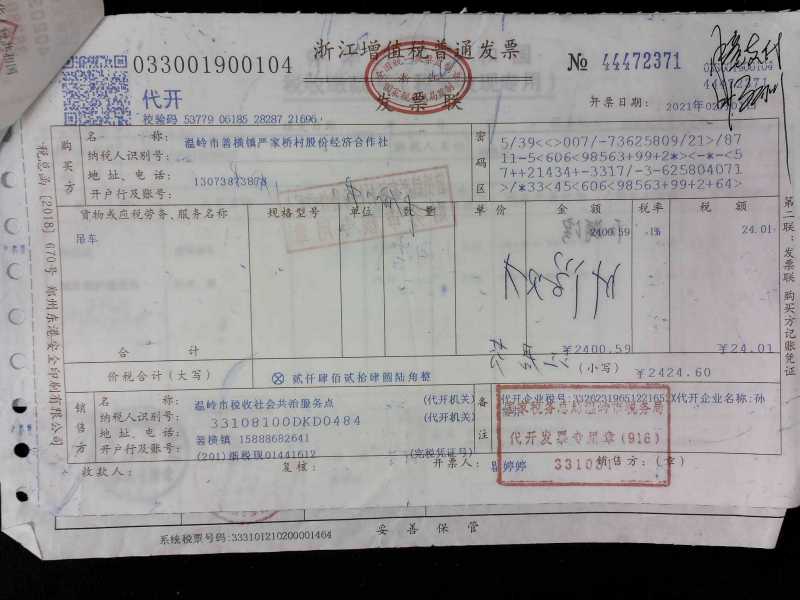 浙江增值税普通发票
033001900104
№ 44472371
033001900104
44472371
代开
发票联
校验码 53779 06185 28287 21696
开票日期： 2021年02
购买方
名 称：温岭市箬横镇严家桥村股份经济合作社
纳税人识别号：
地 址、电 话： 13073873878
开户行及账号：
密码区
5/39<<>007/-73625809/21>/87
11-5<606<98563+99+2*><-*-<5
7++21434+-3317/-3-625804071
>/*33<45<606<98563+99+2+64>
货物或应税劳务、服务名称 规格型号 单位 数 量 单 价 金 额 税率 税 额
吊车 2400.59 1% 24.01
合 计 ¥2400.59 ¥24.01
价税合计（大写） ⊗ 贰仟肆佰贰拾肆圆陆角整 （小写） ¥2424.60
销售方
名 称：温岭市税收社会共治服务点 (代开机关)
纳税人识别号：33108100DKD0484 (代开机关)
地 址、电 话：箬横镇 15888682641
开户行及账号：(201)浙税现01441612 (完税凭证号)
备注
代开企业税号:33262319651221652X代开企业名称:孙
国家税务总局温岭市税务局
代开发票专用章(916)
收款人： 复核： 开票人： 婷婷 销售方：（章）
税总函〔2018〕670号 郑州东港安全印刷有限公司
第二联：发票联 购买方记账凭证
妥 善 保 管
系统税票号码:333101210200001464